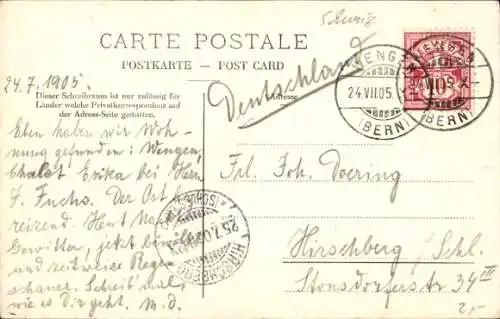 Schweiz
CARTE POSTALE
POSTKARTE — POST CARD
24.7.1905.
Dieser Schreibraum ist nur zulässig für
Länder welche Privatkorrespondenz auf
der Adress-Seite gestatten.
Adresse
Deutschland
WENGEN
24.VII.05
(BERN)
WENGEN
10
(BERN)
Eben haben wir Woh-
nung gefunden: Wengen,
Chalet Erika bei Herrn
F. Fuchs. Der Ort ist
reizend. Heut Nacht
Gewitter, jetzt
und zeitweise Regen-
schauer. Schreib' mal,
wie es Dir geht. M.D.
Frl. Joh. Doering
Hirschberg i/Schl.
Stonsdorferstr. 34 III
HIRSCHBERG
(SCHLESIEN)
25.7.05
2,-